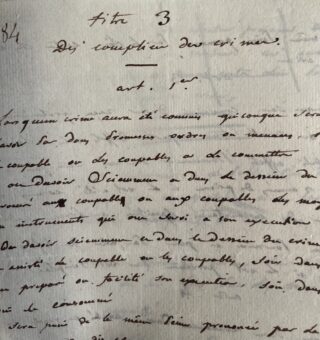 84
titre 3
Des complices des crimes.
art. 1er
Lorsqu'un crime aura été commis quiconque sera
avoir par dons promesses ordres ou menaces,
coupable ou les coupables a le commettre
ou d'avoir sciemment et dans le dessein du
procuré aux coupable ou aux coupables des moy
instruments qui ont servi a son execution
Ou d'avoir sciemment et dans le dessein du crime
le coupable ou les coupables, soit dans
preparé ou facilité son execution, soit dans
qui l'a consommé
Sera puni de la même peine prononcé par la